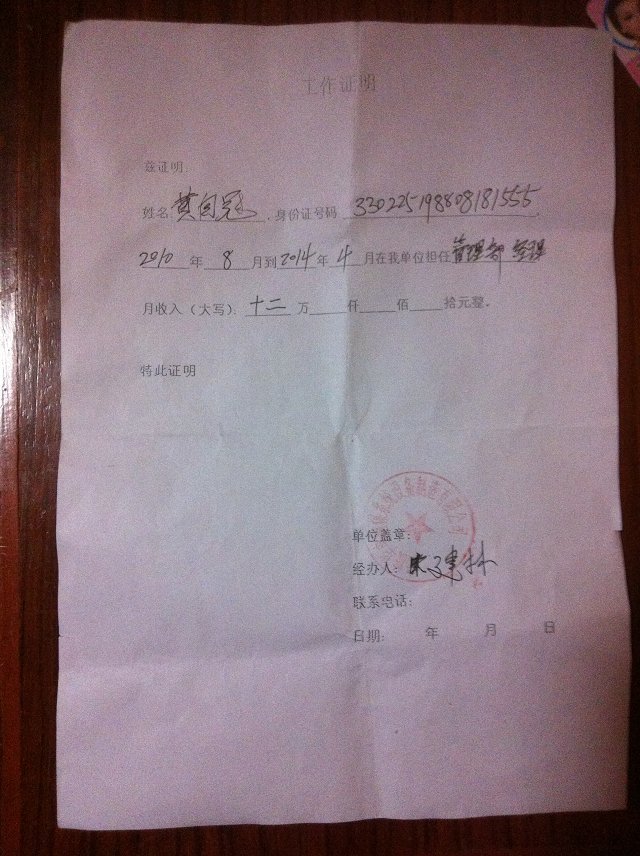 工作证明
兹证明
姓名:黄自冠,身份证号码 330225198808181555
2010年8月到2014年4月在我单位担任管理部 经理
月收入(大写):十二万___仟___佰___拾元整。
特此证明
单位盖章:
经办人:朱建林
联系电话:
日期: 年 月 日